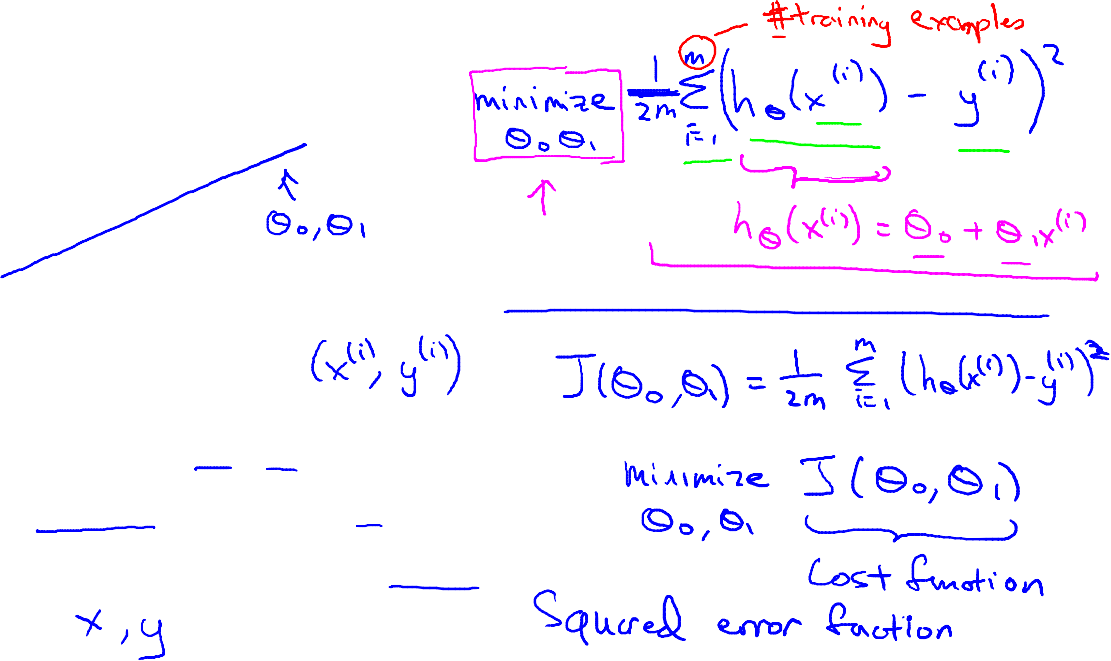 #training examples
minimize θ₀ θ₁ 1/2m Σ_{i=1}^{m} (h_θ(x^{(i)}) - y^{(i)})²
θ₀, θ₁
h_θ(x^{(i)}) = θ₀ + θ₁x^{(i)}
(x^{(i)}, y^{(i)})
J(θ₀, θ₁) = 1/2m Σ_{i=1}^{m} (h_θ(x^{(i)}) - y^{(i)})²
minimize J(θ₀, θ₁)
θ₀, θ₁
Cost function
x, y
Squared error function